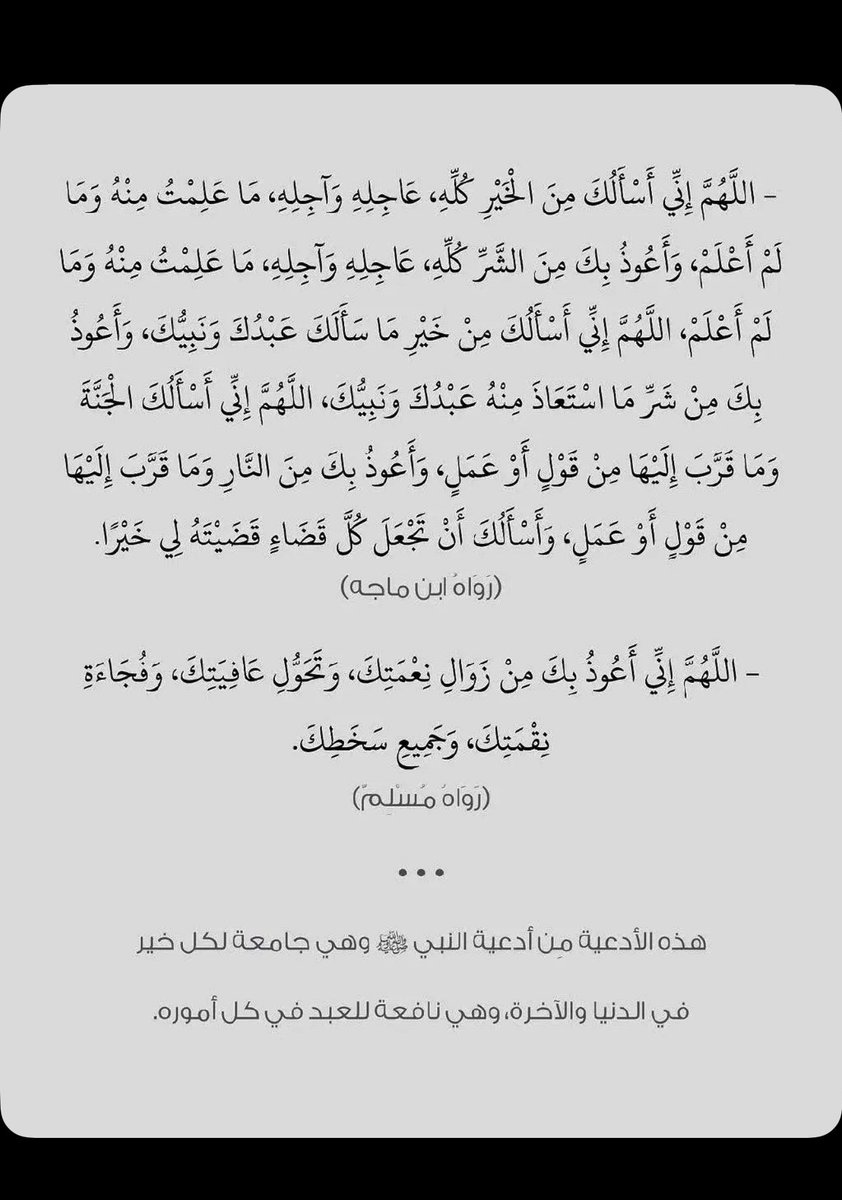 - اللَّهُمَّ إِنِّي أَسْأَلُكَ مِنَ الْخَيْرِ كُلِّهِ، عَاجِلِهِ وَآجِلِهِ، مَا عَلِمْتُ مِنْهُ وَمَا
لَمْ أَعْلَمْ، وَأَعُوذُ بِكَ مِنَ الشَّرِّ كُلِّهِ، عَاجِلِهِ وَآجِلِهِ، مَا عَلِمْتُ مِنْهُ وَمَا
لَمْ أَعْلَمْ، اللَّهُمَّ إِنِّي أَسْأَلُكَ مِنْ خَيْرِ مَا سَأَلَكَ عَبْدُكَ وَنَبِيُّكَ، وَأَعُوذُ
بِكَ مِنْ شَرِّ مَا اسْتَعَاذَ مِنْهُ عَبْدُكَ وَنَبِيُّكَ، اللَّهُمَّ إِنِّي أَسْأَلُكَ الْجَنَّةَ
وَمَا قَرَّبَ إِلَيْهَا مِنْ قَوْلٍ أَوْ عَمَلٍ، وَأَعُوذُ بِكَ مِنَ النَّارِ وَمَا قَرَّبَ إِلَيْهَا
مِنْ قَوْلٍ أَوْ عَمَلٍ، وَأَسْأَلُكَ أَنْ تَجْعَلَ كُلَّ قَضَاءٍ قَضَيْتَهُ لِي خَيْرًا.
(رَوَاهُ ابن ماجه)
- اللَّهُمَّ إِنِّي أَعُوذُ بِكَ مِنْ زَوَالِ نِعْمَتِكَ، وَتَحَوُّلِ عَافِيَتِكَ، وَفُجَاءَةِ
نِقْمَتِكَ، وَجَمِيعِ سَخَطِكَ.
(رَوَاهُ مُسْلِمٌ)
...
هذه الأدعية مِن أدعية النبي ﷺ وهي جامعة لكل خير
في الدنيا والآخرة، وهي نافعة للعبد في كل أموره.